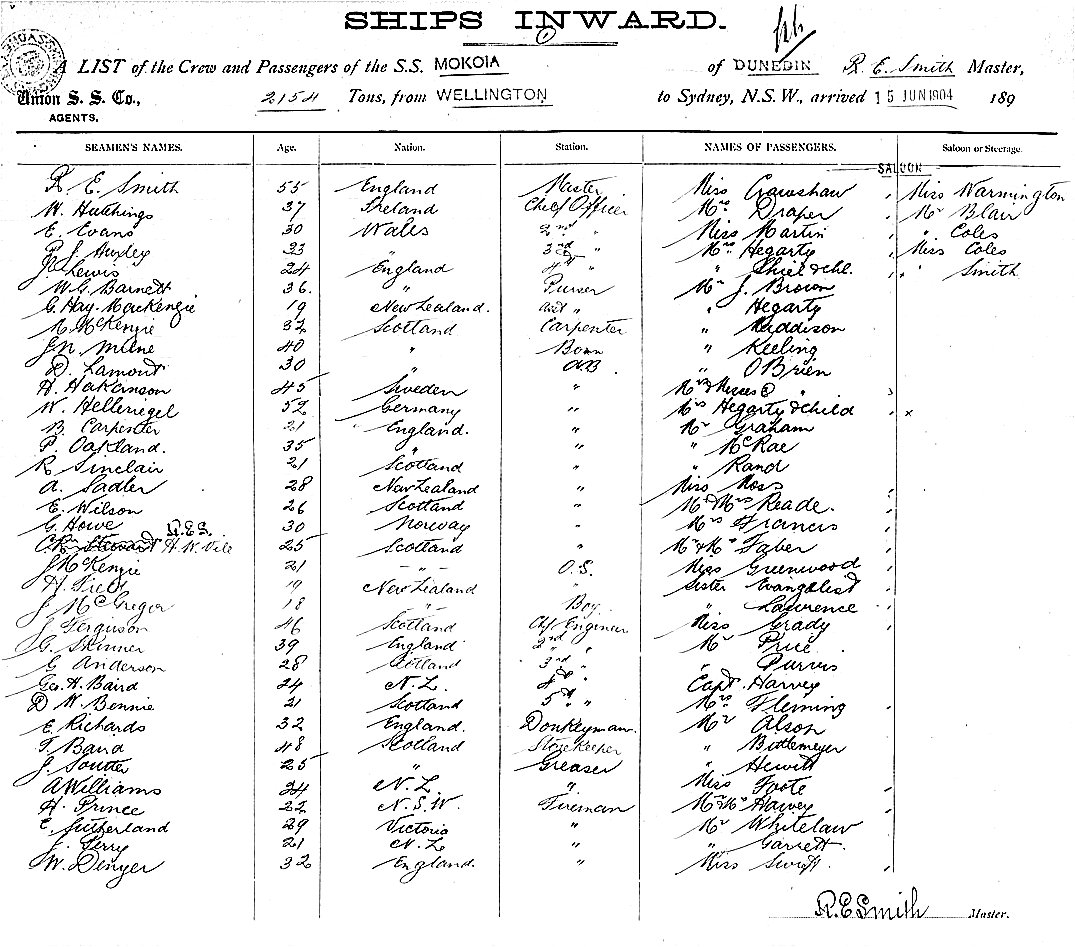 SHIPS INWARD.
A LIST of the Crew and Passengers of the S.S. MOKOIA of DUNEDIN R. E. Smith Master,
Union S. S. Co., 2154 Tons, from WELLINGTON to Sydney, N.S.W., arrived 15 JUN 1904 189
AGENTS.
SEAMEN'S NAMES. Age. Nation. Station. NAMES OF PASSENGERS. Saloon or Steerage.
SALOON
R E. Smith 55 England Master Miss Crawshaw " Miss Warmington
W. Hutchings 37 Ireland Chief Officer Mrs Draper " Mr Blair
E. Evans 30 Wales 2nd " Miss Martin " " Coles
P. J. Huxley 23 " 3rd " Mrs Hegarty " Miss Coles
J Lewis 24 England 4th " " Shiel & chl. " " Smith
W. G. Barnett 36. " Purser Mr J. Brown
G. Hay. MacKenzie 19 New Zealand. asst " " Hegarty
McKenzie 32 Scotland Carpenter " Reddison
Milne 40 " Bosn " Keeling
D. Lamont 30 " AB. " O'Brien
H. Hakanson 45 Sweden " "
W. Hellerregel 52 Germany " Mrs Hegarty & child " x
B. Carpenter 21 England. " Mr Graham
P. Oakland. 35 " " " McRae
R Sinclair 21 Scotland " " Rand
A. Sadler 28 New Zealand " Miss Moss "
E. Wilson 26 Scotland " Mr & Mrs Reade. "
G. Howe 30 Norway " Mrs Francis "
R.E.S.
Stewart H. W. Vile 25 Scotland " Mr & Mrs Faber "
J McKenzie 21 - " - O.S. Miss Greenwood "
H. Field 19 New Zealand " Sister Evangelist "
J McGregor 18 " Boy. " Lawrence "
J Ferguson 46 Scotland Chf Engineer Miss Grady "
G. Skinner 39 England 2nd " " Mr Price "
G Anderson 28 Scotland 3rd " " Purves
Geo. H. Baird 24 N. Z. 4th " Capt. Harvey "
D W. Bennie 21 Scotland 5th " Mrs Fleming "
E. Richards 32 England. Donkeyman. Mr Alson "
T. Baird 48 Scotland Storekeeper " Bittlemeyer "
J. Soutter 25 " Greaser " Hewitt "
A Williams 24 N. Z. " Miss Foote "
H. Prince 22 N. S. W. Fireman Mr & Mrs Harvey "
E. Sutherland 29 Victoria " Mr Whitelaw "
J. Terry 21 N. Z. " " Garrett. "
W. Denyer 32 England. " Miss Swift. "
R. E Smith Master.